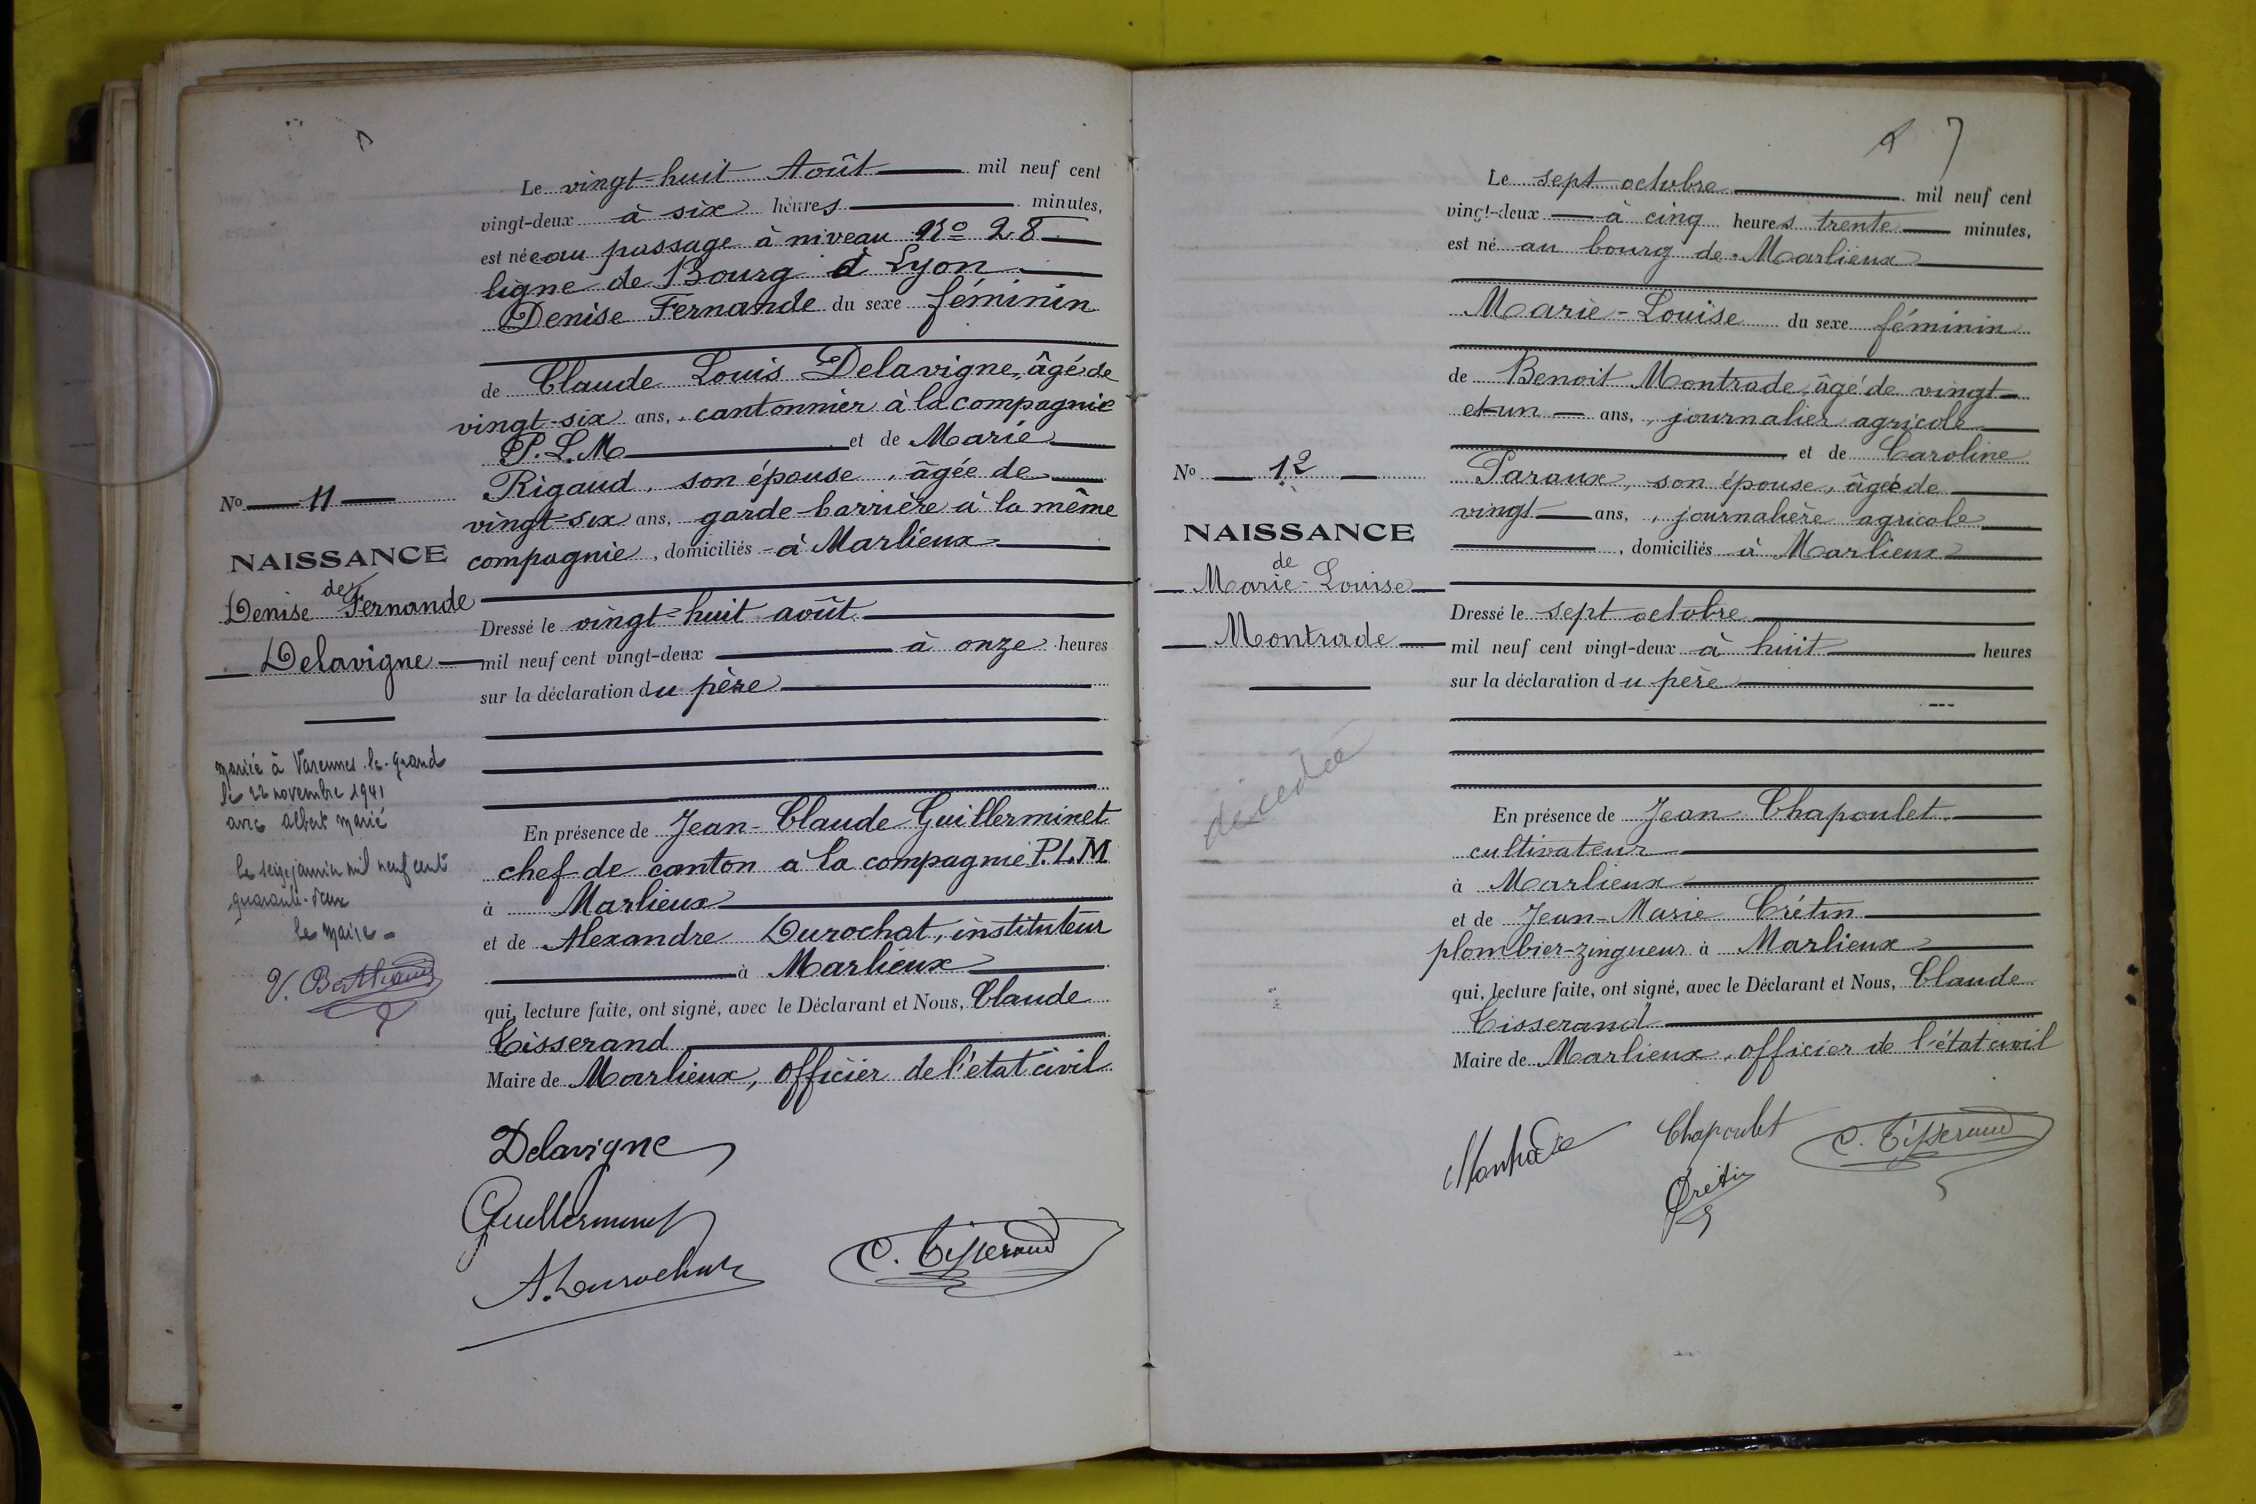 Le vingt-huit Août mil neuf cent
vingt-deux à six heures minutes,
est née au passage à niveau No 28
ligne de Bourg à Lyon
Denise Fernande du sexe féminin
de Claude Louis Delavigne, âgé de
vingt-six ans, cantonnier à la compagnie
P.L.M et de Marie
Rigaud, son épouse, âgée de
vingt-six ans, garde-barrière à la même
compagnie, domiciliés à Marlieux
No 11
NAISSANCE
de
Denise Fernande
Delavigne
Dressé le vingt-huit août
mil neuf cent vingt-deux à onze heures
sur la déclaration du père
mariée à Varennes-le-grand
le 22 novembre 1941
avec Albert Marié
le seize janvier mil neuf cent
quarante-deux
le Maire
En présence de Jean-Claude Guillerminet
chef de canton à la compagnie P.L.M
à Marlieux
et de Alexandre Durochat, instituteur
à Marlieux
qui, lecture faite, ont signé, avec le Déclarant et Nous, Claude
Tisserand
Maire de Marlieux, officier de l'état civil
Delavigne
Guillerminet
A. Durochat
C. Tisserand
7
Le sept octobre mil neuf cent
vingt-deux à cinq heures trente minutes,
est né au bourg de Marlieux
Marie-Louise du sexe féminin
de Benoit Montrade, âgé de vingt-
et-un ans, journalier agricole
et de Caroline
Paraux, son épouse, âgée de
vingt ans, journalière agricole
domiciliés à Marlieux
No 12
NAISSANCE
de
Marie-Louise
Montrade
décédée
Dressé le sept octobre
mil neuf cent vingt-deux à huit heures
sur la déclaration du père
En présence de Jean Chapoulet
cultivateur
à Marlieux
et de Jean-Marie Crétin
plombier-zingueur à Marlieux
qui, lecture faite, ont signé, avec le Déclarant et Nous, Claude
Tisserand
Maire de Marlieux, officier de l'état civil
Montrade Chapoulet C. Tisserand
Crétin